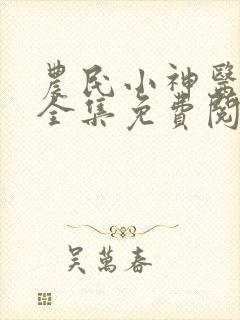 農民小神醫
全集免費閱
吳萬春